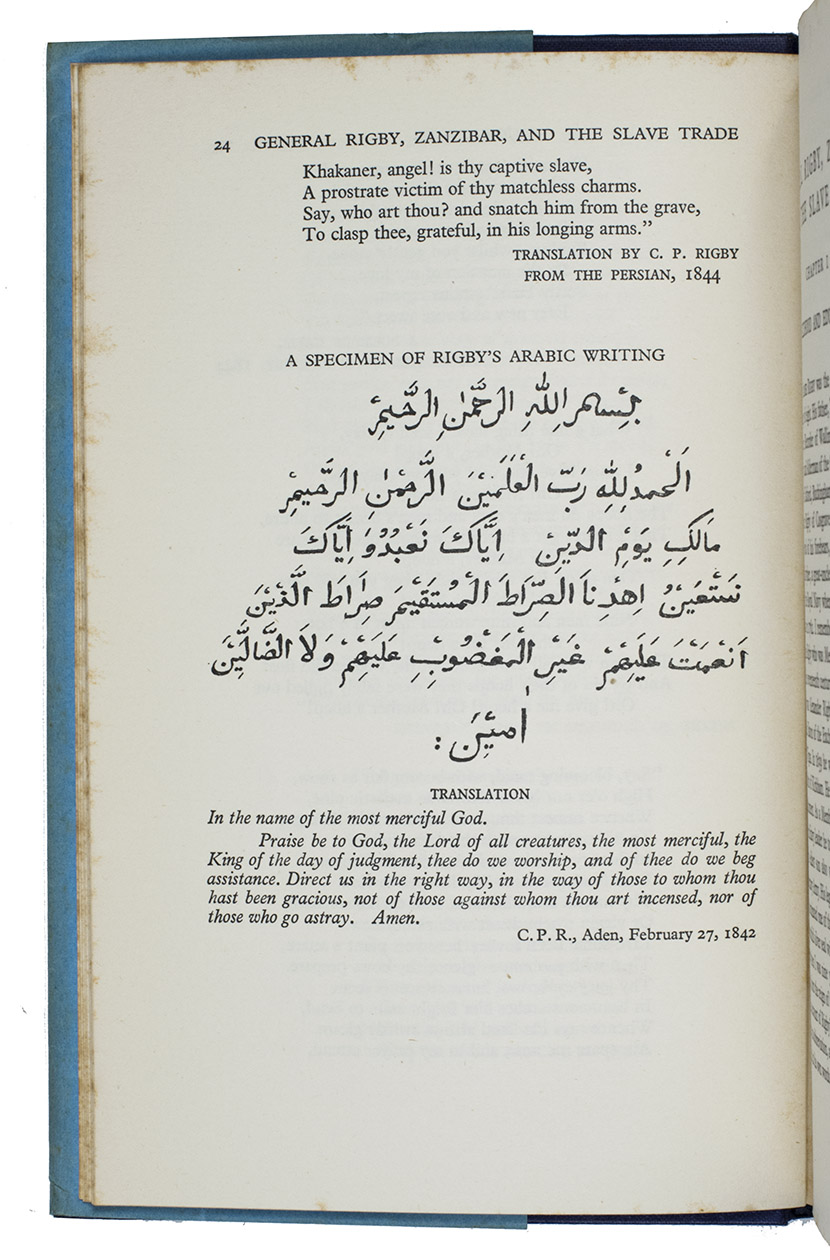 24 GENERAL RIGBY, ZANZIBAR, AND THE SLAVE TRADE
Khakaner, angel! is thy captive slave,
A prostrate victim of thy matchless charms.
Say, who art thou? and snatch him from the grave,
To clasp thee, grateful, in his longing arms.”
TRANSLATION BY C. P. RIGBY
FROM THE PERSIAN, 1844
A SPECIMEN OF RIGBY’S ARABIC WRITING
بِسْمِ اللهِ الرَّحْمٰنِ الرَّحِيْمِ
اَلْحَمْدُ لِلّٰهِ رَبِّ الْعٰلَمِيْنَ الرَّحْمٰنِ الرَّحِيْمِ
مَالِكِ يَوْمِ الدِّيْنِ اِيَّاكَ نَعْبُدُ وَ اِيَّاكَ
نَسْتَعِيْنُ اِهْدِنَا الصِّرَاطَ الْمُسْتَقِيْمَ صِرَاطَ الَّذِيْنَ
اَنْعَمْتَ عَلَيْهِمْ غَيْرِ الْمَغْضُوْبِ عَلَيْهِمْ وَلَا الضَّالِّيْنَ
اٰمِيْنَ :
TRANSLATION
In the name of the most merciful God.
Praise be to God, the Lord of all creatures, the most merciful, the
King of the day of judgment, thee do we worship, and of thee do we beg
assistance. Direct us in the right way, in the way of those to whom thou
hast been gracious, not of those against whom thou art incensed, nor of
those who go astray. Amen.
C. P. R., Aden, February 27, 1842